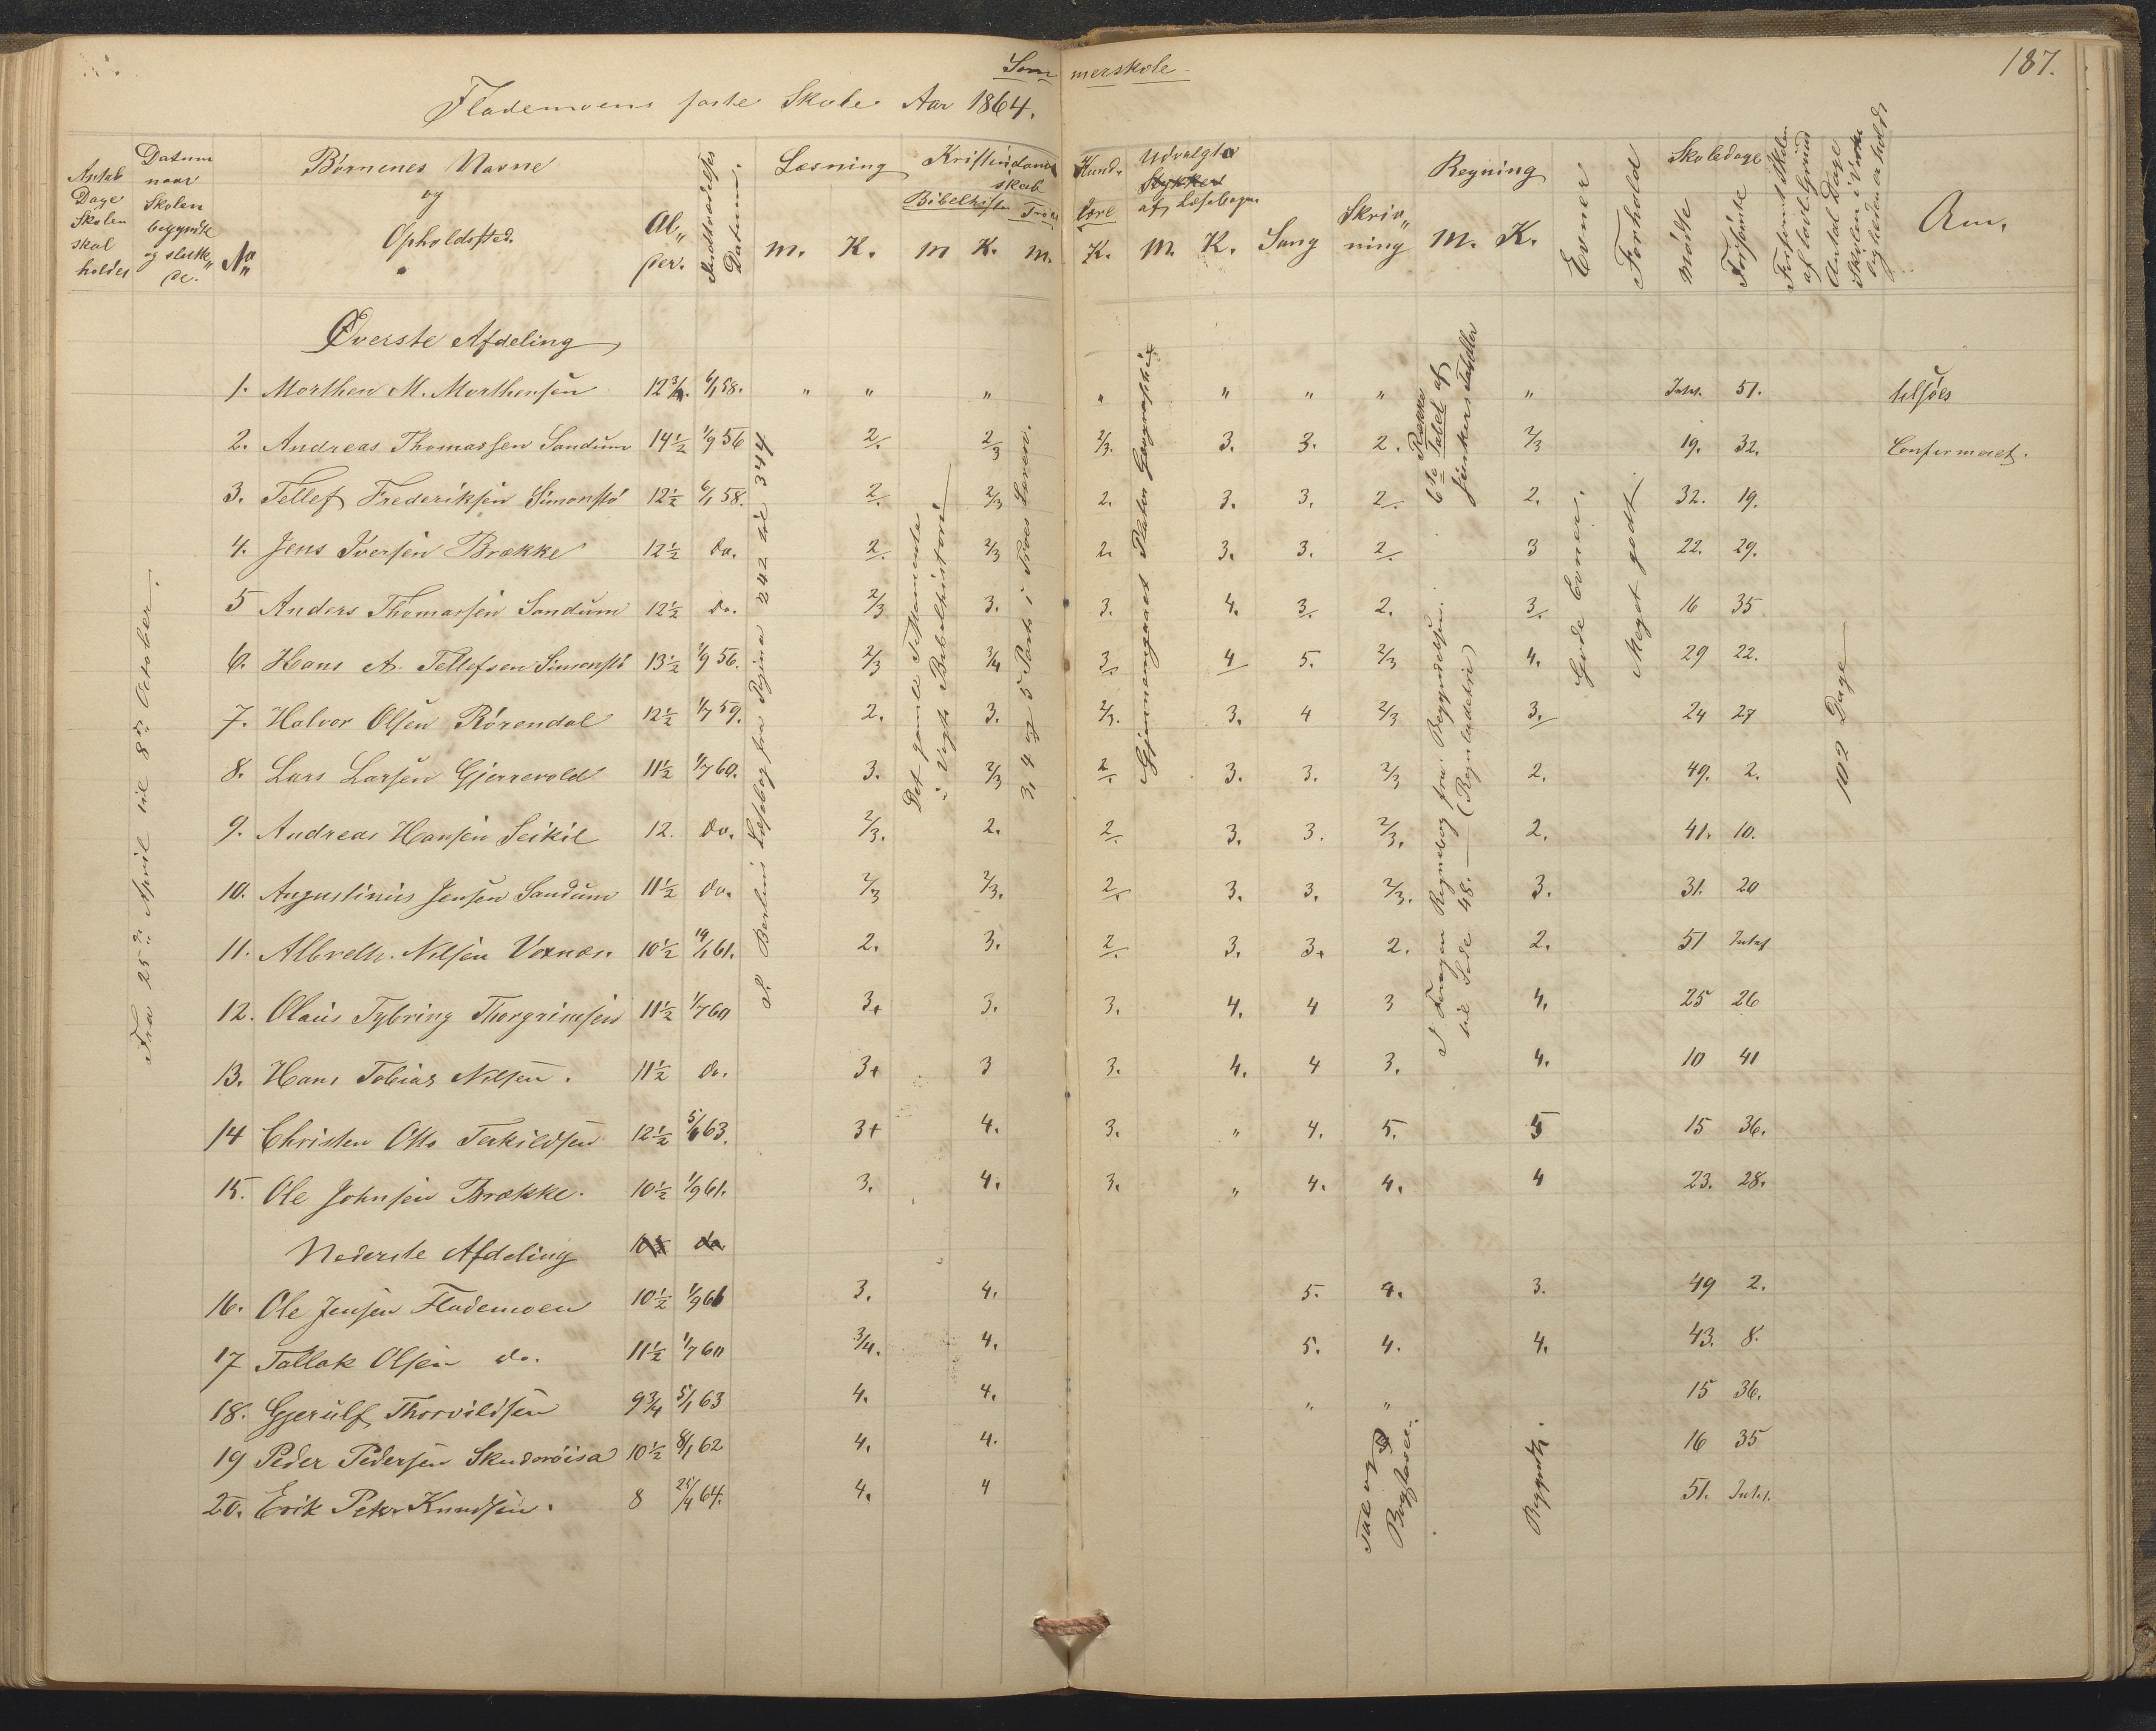 Sommerskole
187.
Flademoens faste Skole Aar 1864.
Antal Dage Skolen skal holdes
Datum naar Skolen begyndte og sluttede.
No
Børnenes Navne og Opholdsted.
Alder.
Indtrædelses Datum.
Læsning M. K.
Kristendomskundskab
Bibelhist. M K.
Troeslære M. K.
Udvalgte Stykker af Læsebogen M. K.
Sang
Skrivning
Regning M. K.
Evner
Forhold
Skoledage
mødte
Forsømte
Forsømt Skolen af lovl. Grund
Antal Dage Skolen i Virkeligheden er holdt
Anm.
Fra 25de April til 8de October.
I Læsebog fra Pagina 242 til 344
Det gamle Testamente i Vogts Bibelhistorie
3, 4 og 5 Part i Troes Læren.
Gjennemgaaet Platou Geographie
6te Række
I Regnebog fra Begyndelsen til Side 48.
Gode Evner.
Meget godt.
102 Dage
Øverste Afdeling
1. Morthen M. Morthensen 12 3/4. 6/1 58. " " " " " " " " Intet. 51. tilsøes
2. Andreas Thomassen Sandum 14 1/2 1/9 56 2. 2/3 2/3. 3. 3. 2. 2/3 19. 32. Confirmeret.
3. Tellef Frederiksen Simonstø 12 1/2 6/1 58. 2. 2/3 2. 3. 3. 2. 2. 32. 19.
4. Jens Iversen Brække 12 1/2 do. 2. 2/3 2. 3. 3. 2. 3 22. 29.
5 Anders Thomassen Sandum 12 1/2 do. 2/3 3. 3. 4. 3. 2. 3. 16 35
6. Hans A. Tellefsen Simonstø 13 1/2 1/9 56. 2/3 3/4 3. 4 5. 2/3 4. 29 22.
7. Halvor Olsen Rörendal 12 1/2 1/7 59. 2. 3. 2/3. 3. 4 2/3 3. 24 27
8. Lars Larsen Gjerrevold 11 1/2 1/7 60. 3. 2/3 2. 3. 3. 2/3 2. 49. 2.
9. Andreas Hansen Seikil 12. do. 2/3. 2. 2. 3. 3. 2/3. 2. 41. 10.
10. Augustinius Jensen Sandum 11 1/2 do. 2/3 2/3. 2. 3. 3. 2/3. 3. 31. 20
11. Albreth. Nilsen Voxnæs. 10 1/2 14/1 61. 2. 3. 2. 3. 3+ 2. 2. 51 Intet
12. Olaus Tybring Thorgrimsen 11 1/2 1/7 60 3+ 3. 3. 4. 4 3 4. 25 26
13. Hans Tobias Nilsen. 11 1/2 do. 3+ 3 3. 4. 4 3. 4. 10 41
14 Christen Otto Terkildsen 12 1/2 5/1 63. 3+ 4. 3. " 4. 5. 5 15 36.
15. Ole Johnsen Brække. 10 1/2 1/9 61. 3. 4. 3. " 4. 4. 4 23. 28.
Nederste Afdeling 10 1/2 do
16. Ole Jensen Flademoen 10 1/2 1/9 61 3. 4. 5. 4. 3. 49 2.
17 Tallak Olsen do. 11 1/2 1/7 60 3/4. 4. 5. 4. 4. 43. 8.
18. Gjerulf Thorvildsen 9 3/4 5/1 63 4. 4. " " 15 36.
19 Peder Pedersen Skuderöisa 10 1/2 8/1 62 4. 4. 16 35
20. Erik Peter Knudsen. 8 25/4 64. 4. 4 51. Intet.
Tal og Bogstaver.
Begyndt.